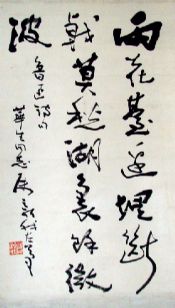 雨花臺邊埋斷
戟莫愁湖裏餘微
波
魯迅詩句
同志屬